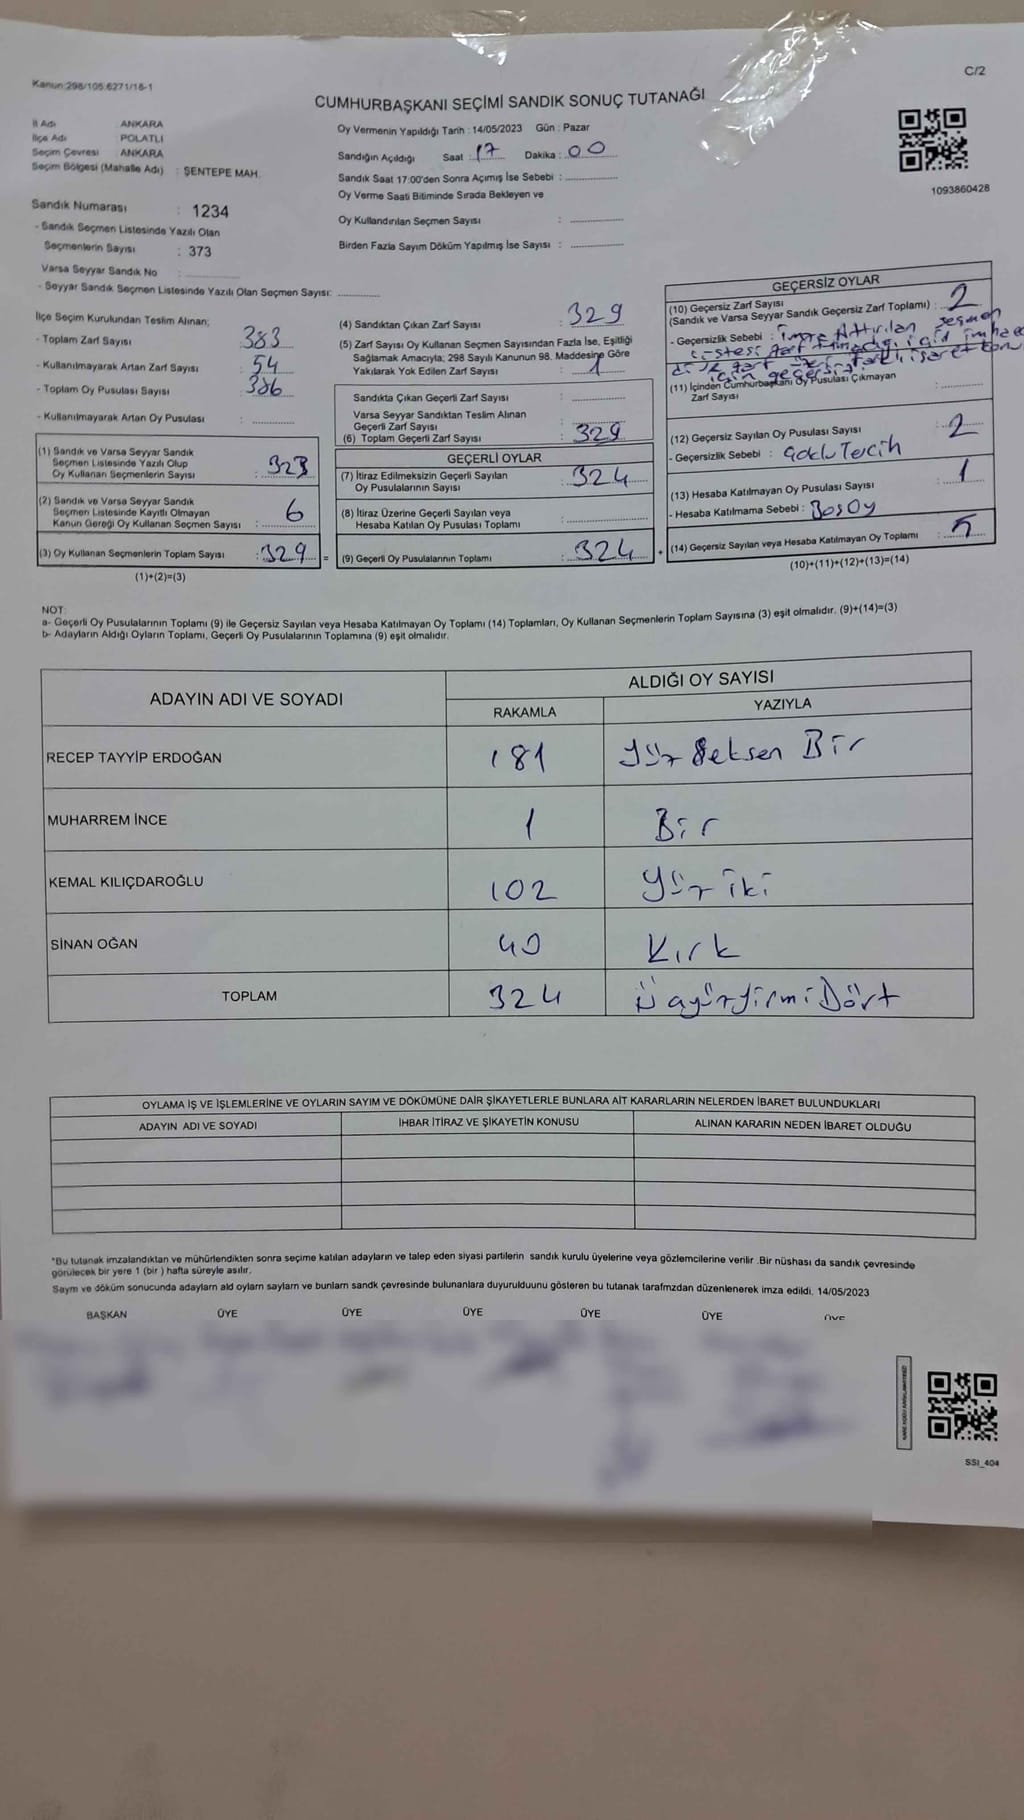 Kanun:298/105.6271/16-1
C/2
CUMHURBAŞKANI SEÇİMİ SANDIK SONUÇ TUTANAĞI
İl Adı ANKARA
İlçe Adı POLATLI
Seçim Çevresi ANKARA
Seçim Bölgesi (Mahalle Adı) : ŞENTEPE MAH.
Oy Vermenin Yapıldığı Tarih : 14/05/2023 Gün : Pazar
Sandığın Açıldığı Saat : 17 Dakika : 00
Sandık Saat 17:00'den Sonra Açımış İse Sebebi :
Oy Verme Saati Bitiminde Sırada Bekleyen ve
Oy Kullandırılan Seçmen Sayısı :
Birden Fazla Sayım Döküm Yapılmış İse Sayısı :
1093860428
Sandık Numarası : 1234
- Sandık Seçmen Listesinde Yazılı Olan
Seçmenlerin Sayısı : 373
Varsa Seyyar Sandık No :
- Seyyar Sandık Seçmen Listesinde Yazılı Olan Seçmen Sayısı:
İlçe Seçim Kurulundan Teslim Alınan;
- Toplam Zarf Sayısı : 383
- Kullanılmayarak Artan Zarf Sayısı : 54
- Toplam Oy Pusulası Sayısı : 386
- Kullanılmayarak Artan Oy Pusulası :
(1) Sandık ve Varsa Seyyar Sandık
Seçmen Listesinde Yazılı Olup
Oy Kullanan Seçmenlerin Sayısı : 323
(2) Sandık ve Varsa Seyyar Sandık
Seçmen Listesinde Kayıtlı Olmayan
Kanun Gereği Oy Kullanan Seçmen Sayısı : 6
(3) Oy Kullanan Seçmenlerin Toplam Sayısı : 329 =
(1)+(2)=(3)
(4) Sandıktan Çıkan Zarf Sayısı : 329
(5) Zarf Sayısı Oy Kullanan Seçmen Sayısından Fazla İse, Eşitliği
Sağlamak Amacıyla; 298 Sayılı Kanunun 98. Maddesine Göre
Yakılarak Yok Edilen Zarf Sayısı : 1
Sandıkta Çıkan Geçerli Zarf Sayısı :
Varsa Seyyar Sandıktan Teslim Alınan
Geçerli Zarf Sayısı :
(6) Toplam Geçerli Zarf Sayısı : 329
GEÇERLİ OYLAR
(7) İtiraz Edilmeksizin Geçerli Sayılan
Oy Pusulalarının Sayısı : 324
(8) İtiraz Üzerine Geçerli Sayılan veya
Hesaba Katılan Oy Pusulası Toplamı :
(9) Geçerli Oy Pusulalarının Toplamı : 324 +
GEÇERSİZ OYLAR
(10) Geçersiz Zarf Sayısı
(Sandık ve Varsa Seyyar Sandık Geçersiz Zarf Toplamı) : 2
- Geçersizlik Sebebi : seçmen
için geçersiz
(11) İçinden Cumhurbaşkanı Oy Pusulası Çıkmayan
Zarf Sayısı :
(12) Geçersiz Sayılan Oy Pusulası Sayısı : 2
- Geçersizlik Sebebi : Çoklu Tercih
(13) Hesaba Katılmayan Oy Pusulası Sayısı : 1
- Hesaba Katılmama Sebebi : Boş Oy
(14) Geçersiz Sayılan veya Hesaba Katılmayan Oy Toplamı : 5
(10)+(11)+(12)+(13)=(14)
NOT:
a- Geçerli Oy Pusulalarının Toplamı (9) ile Geçersiz Sayılan veya Hesaba Katılmayan Oy Toplamı (14) Toplamları, Oy Kullanan Seçmenlerin Toplam Sayısına (3) eşit olmalıdır. (9)+(14)=(3)
b- Adayların Aldığı Oyların Toplamı, Geçerli Oy Pusulalarının Toplamına (9) eşit olmalıdır.
ADAYIN ADI VE SOYADI
ALDIĞI OY SAYISI
RAKAMLA YAZIYLA
RECEP TAYYİP ERDOĞAN 181 Yüz Seksen Bir
MUHARREM İNCE 1 Bir
KEMAL KILIÇDAROĞLU 102 Yüz iki
SİNAN OĞAN 40 Kırk
TOPLAM 324 ÜçyüzYirmiDört
OYLAMA İŞ VE İŞLEMLERİNE VE OYLARIN SAYIM VE DÖKÜMÜNE DAİR ŞİKAYETLERLE BUNLARA AİT KARARLARIN NELERDEN İBARET BULUNDUKLARI
ADAYIN ADI VE SOYADI İHBAR İTİRAZ VE ŞİKAYETİN KONUSU ALINAN KARARIN NEDEN İBARET OLDUĞU
*Bu tutanak imzalandıktan ve mühürlendikten sonra seçime katılan adayların ve talep eden siyasi partilerin sandık kurulu üyelerine veya gözlemcilerine verilir .Bir nüshası da sandık çevresinde
görülecek bir yere 1 (bir ) hafta süreyle asılır.
Saym ve döküm sonucunda adaylarn ald oylarn saylarn ve bunlarn sandk çevresinde bulunanlara duyurulduunu gösteren bu tutanak tarafmzdan düzenlenerek imza edildi. 14/05/2023
BAŞKAN ÜYE ÜYE ÜYE ÜYE ÜYE ÜYE
SSI_404